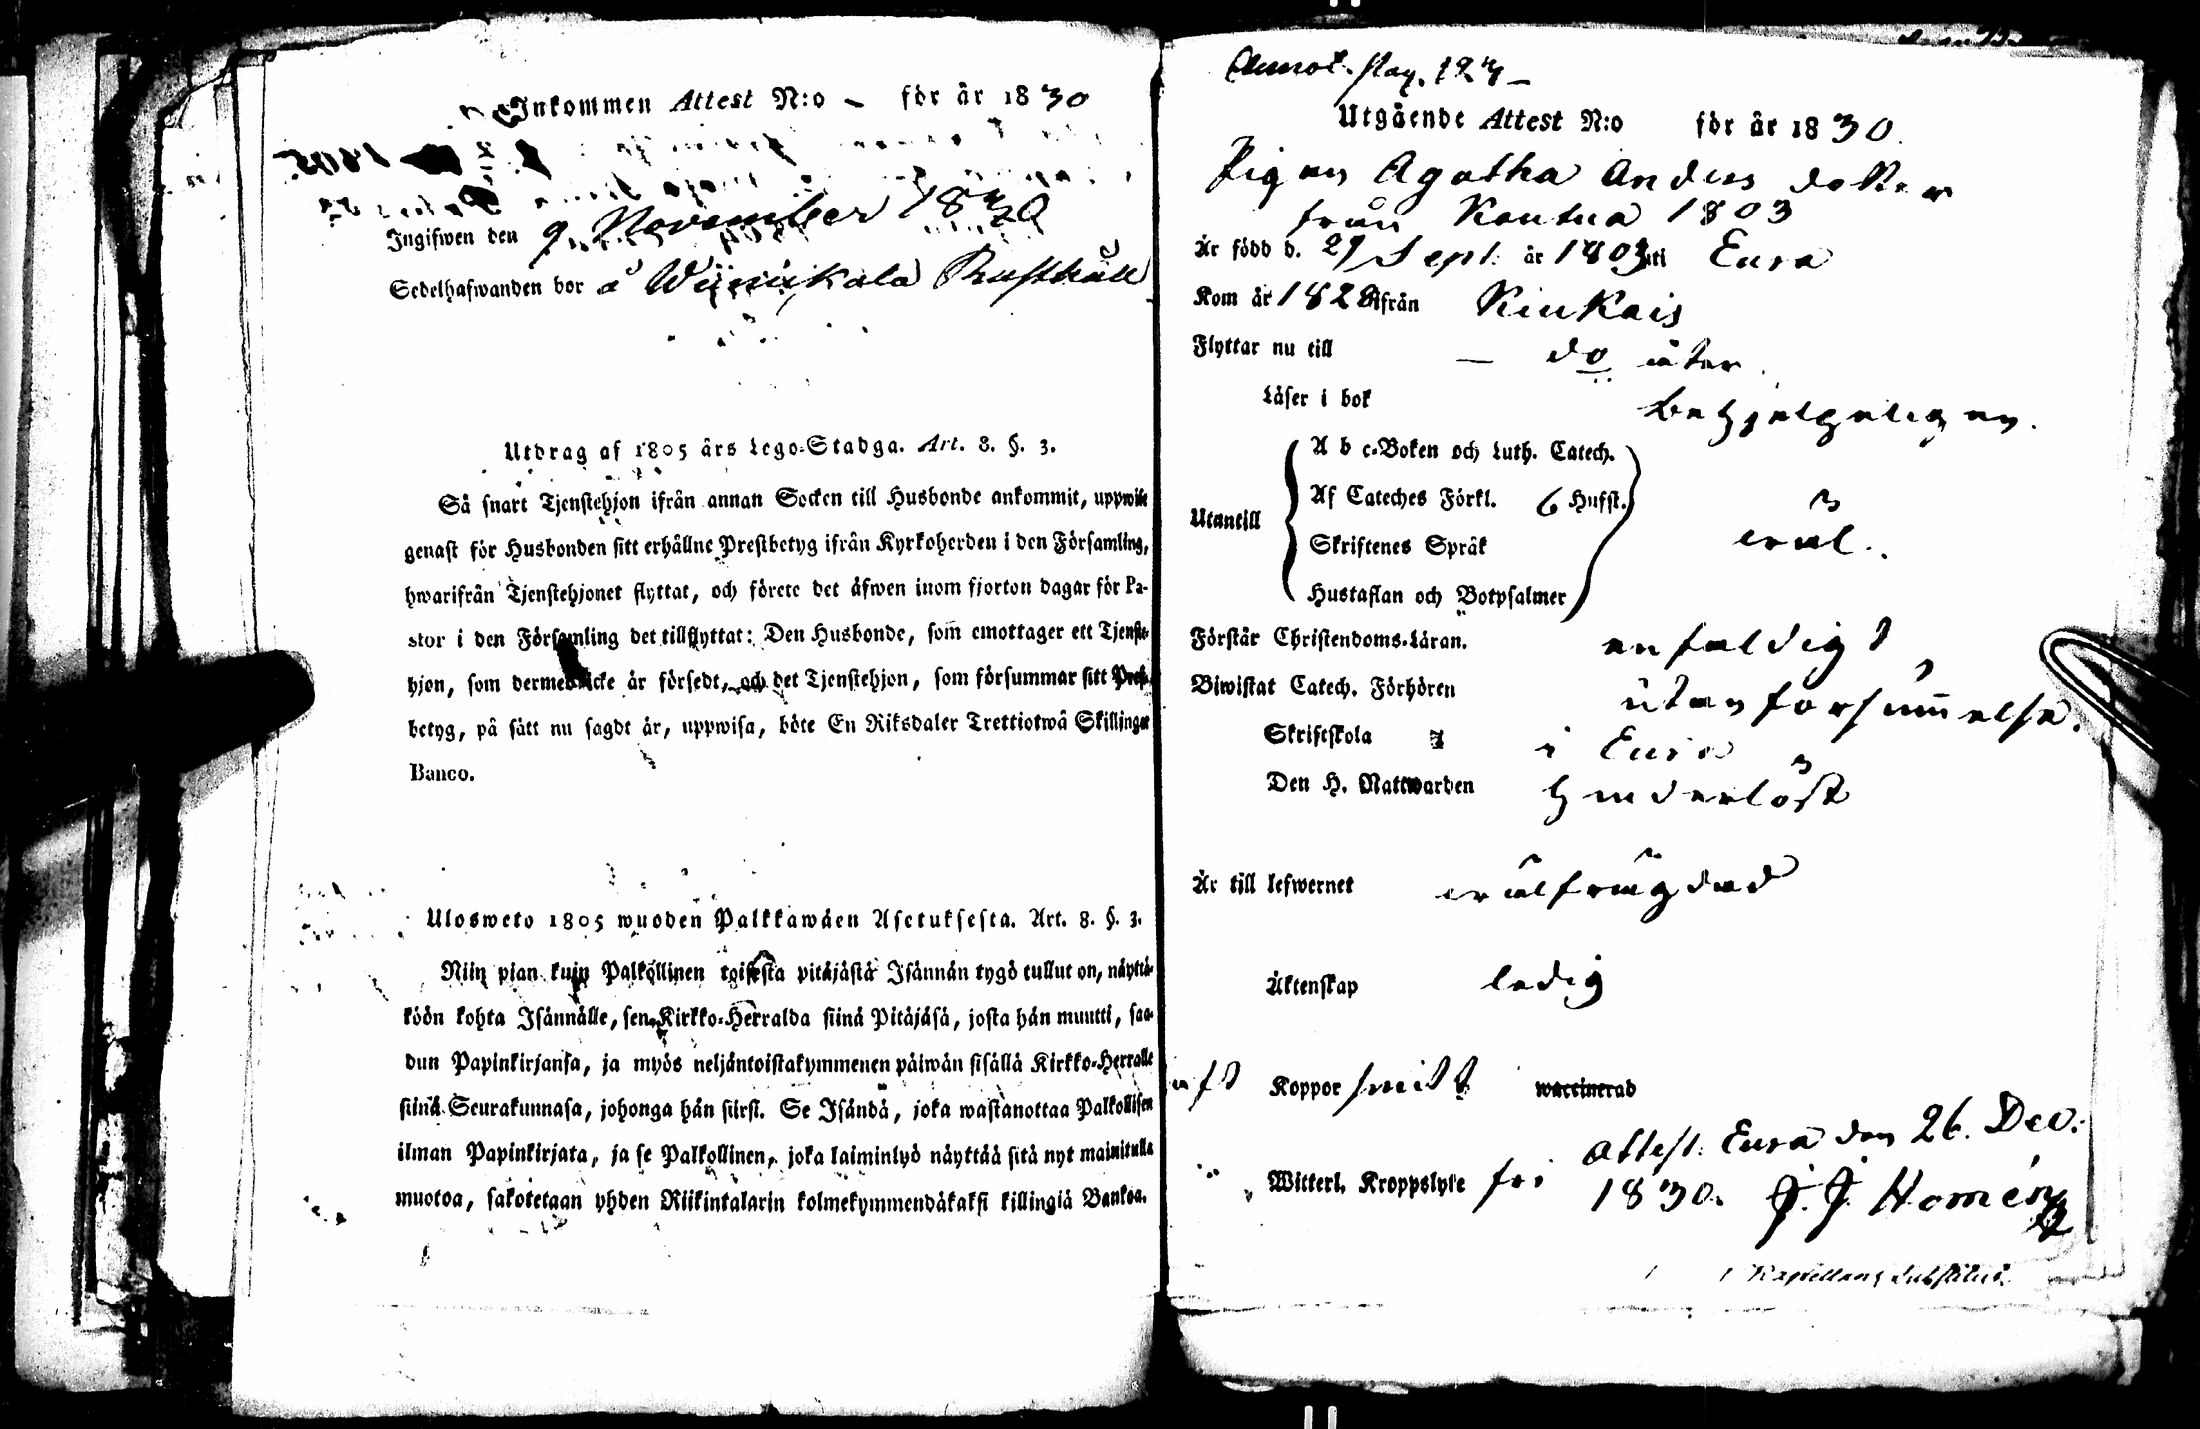 Inkommen Attest N:o – för år 1830
Ingifwen den 9 November 1830
Sedelhafwanden bor å Wiinikala Rusthåll
Utdrag af 1805 års Lego-Stadga. Art. 8. §. 3.
Så snart Tjenstehjon ifrån annan Socken till Husbonde ankommit, uppwise
genast för Husbonden sitt erhållne Prestbetyg ifrån Kyrkoherden i den Församling,
hwarifrån Tjenstehjonet flyttat, och förete det äfwen inom fjorton dagar för Pa-
stor i den Församling det tillflyttat: Den Husbonde, som emottager ett Tjenste-
hjon, som dermed icke är försedt, och det Tjenstehjon, som försummar sitt Prest-
betyg, på sätt nu sagdt är, uppwisa, böte En Riksdaler Trettiotwå Skillingar
Banco.
Ulosweto 1805 wuoden Palkkawäen Asetuksesta. Art. 8. §. 3.
Niin pian kuin Palkollinen toisesta pitäjästä Isännän tygö tullut on, näyttä-
köön kohta Isännälle, sen Kirkko-Herralda siinä Pitäjäsä, josta hän muutti, saa-
dun Papinkirjansa, ja myös neljäntoistakymmenen päiwän sisällä Kirkko-Herralle
siinä Seurakunnasa, johonga hän siirst. Se Isändä, joka wastanottaa Palkollisen
ilman Papinkirjata, ja se Palkollinen, joka laiminlyö näyttää sitä nyt mainitulla
muotoa, sakotetaan yhden Riikintalarin kolmekymmendäkaksi killingiä Bankoa.
Annot. pag. 124 –
Utgående Attest N:o för år 1830.
Pigan Agatha Anders dotter
från Kautua 1803
År född d. 29 Sept. år 1803 uti Eura
Kom år 1828 ifrån Kiukais
Flyttar nu till – do åter.
Läser i bok behjelpeligen.
Utantill
A b c-Boken och Luth. Catech.
Af Cateches Förkl. 6 Hufst.
Skriftenes Språk
wäl.
Hustaflan och Botpsalmer
Förstår Christendoms-Läran. enfaldigt
Biwistat Catech. Förhören utan försummelse.
Skriftskola i Eura
Den H. Nattwarden hinderlöst
Är till lefwernet wälfrägdad
Äktenskap ledig
haft Koppor smitt waccinerad
Attest. Eura den 26. Dec.
Witterl. Kroppslyte fri 1830. J. J. Homén
Kapellans Substitut.